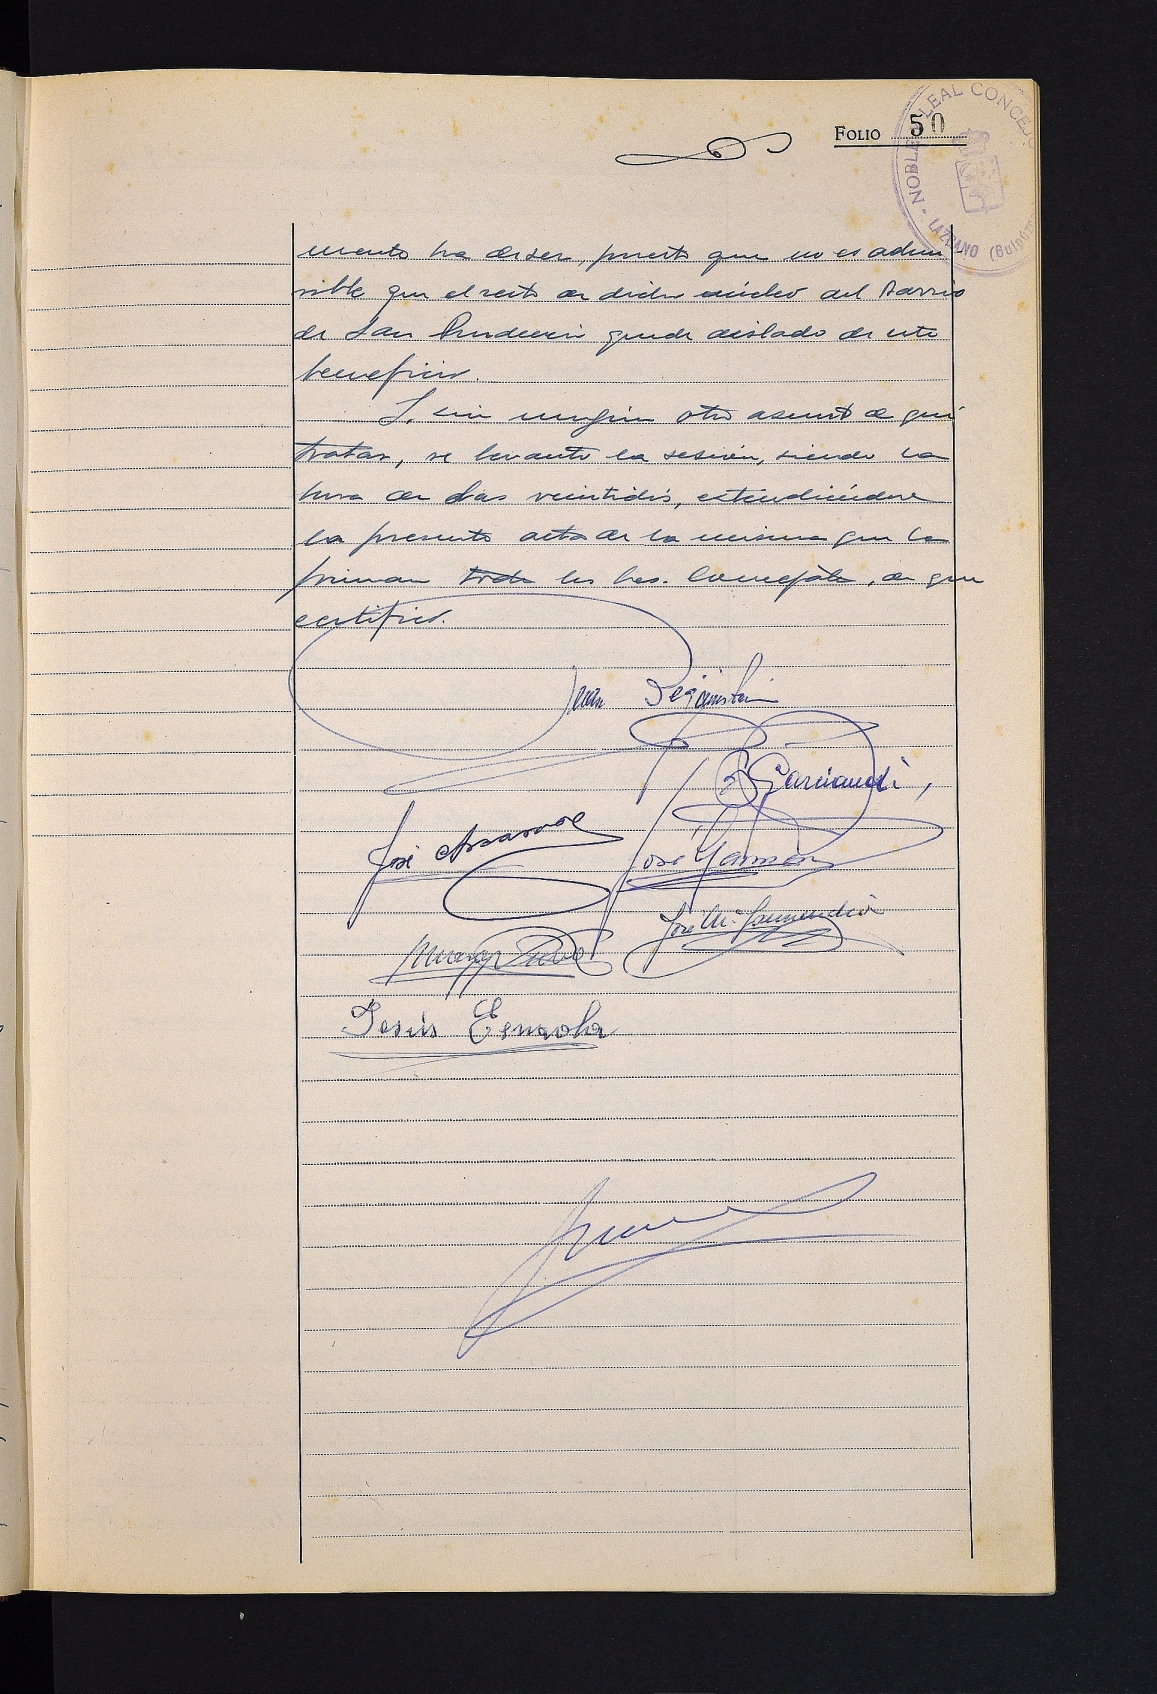 FOLIO 50
NOBLE Y LEAL CONCEJO
LAZCANO (Guipúz
mento ha de ser, puesto que no es admi
sible que el resto de dicho núcleo del Barrio
de San Prudencio quede aislado de este
beneficio.
Y, sin ningún otro asunto de que
tratar, se levanta la sesión, siendo la
hora de las veintidós, extendiéndose
la presente acta de la misma que la
firman todos los Sres. Concejales, de que
certifico.
Juan
Garciandi
José
José
José Mª
Jesús